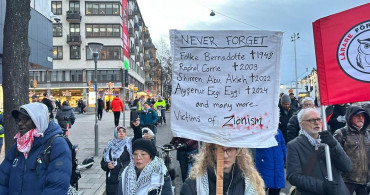 NEVER FORGET
Folke Bernadotte ✝1948
Rachel Corrie ✝2003
Shireen Abu Akleh ✝2022
Ayşenur Ezgi Eygi ✝2024
and many more
Victims of Zionism